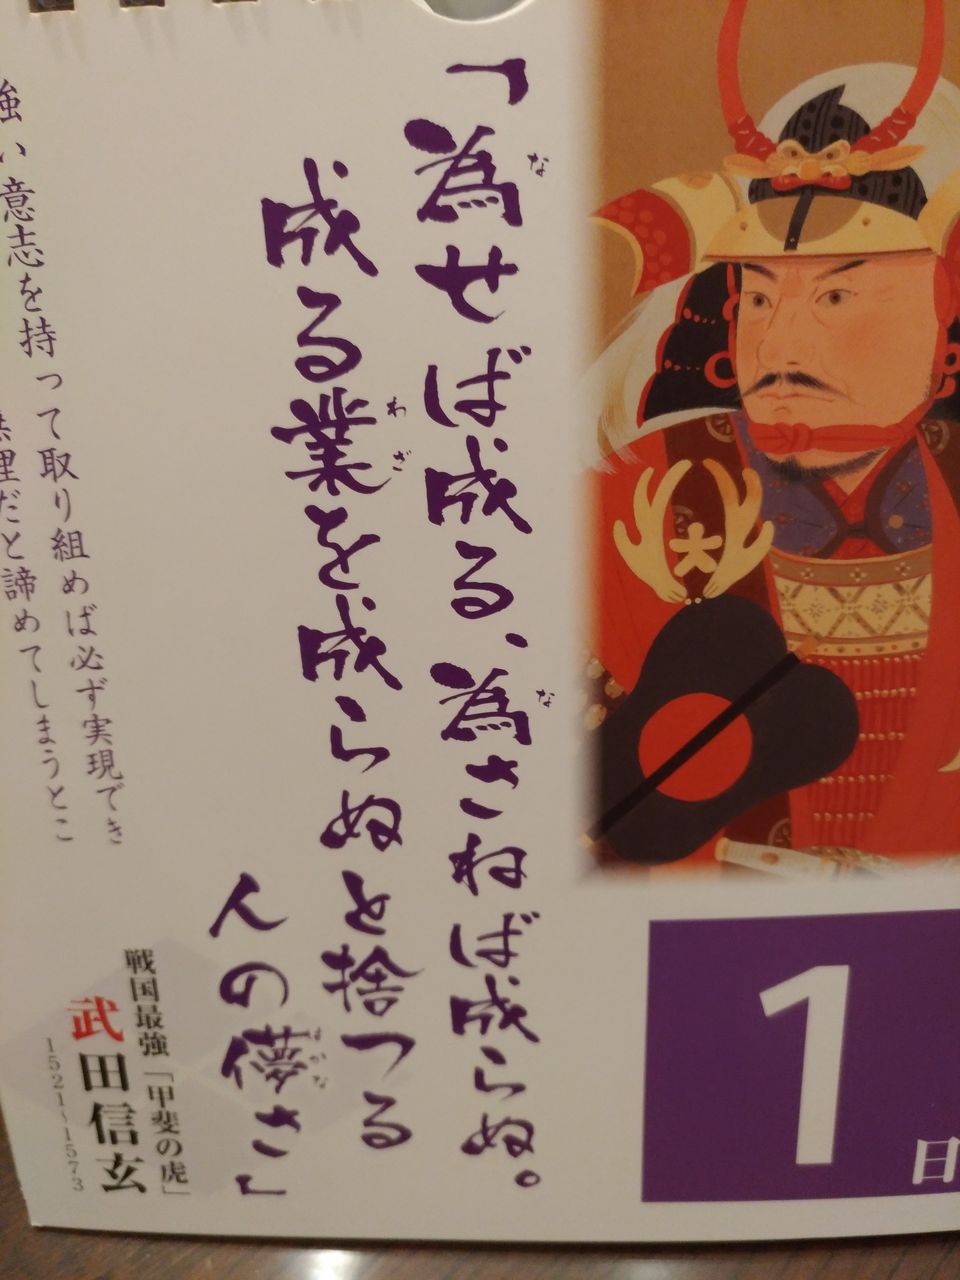 「為せば成る、為さねば成らぬ。
な
な
成る業を成らぬと捨つる
わざ
人の儚さ」
はかな
戦国最強「甲斐の虎」
武田信玄
1521~1573
強い意志を持って取り組めば必ず実現でき
理だと諦めてしまうとこ
大
1日